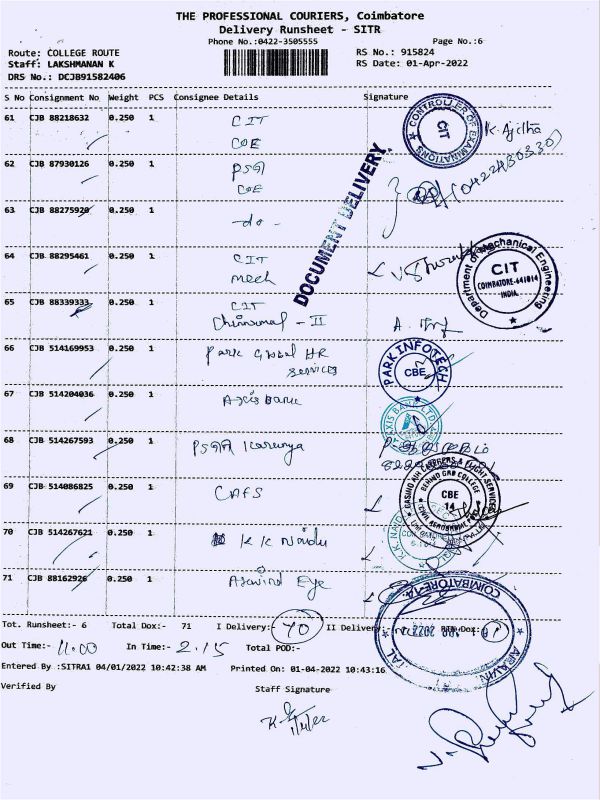 THE PROFESSIONAL COURIERS, Coimbatore
Delivery Runsheet - SITR
Phone No.:0422-3505555 Page No.:6
Route: COLLEGE ROUTE RS No.: 915824
Staff: LAKSHMANAN K RS Date: 01-Apr-2022
DRS No.: DCJB91582406
S No Consignment No Weight PCS Consignee Details Signature
61 CJB 88218632 0.250 1 CIT
COE
CONTROLLER OF EXAMINATIONS CIT
K. Ajitha
62 CJB 87930126 0.250 1 PSG
COE
DOCUMENT DELIVERY
63 CJB 88275920 0.250 1 -do-
64 CJB 88295461 0.250 1 CIT
Mech
Department of Mechanical Engineering
CIT
COIMBATORE-641014
INDIA.
65 CJB 88339333 0.250 1 CIT
Chinnumal - II
66 CJB 514169953 0.250 1 Park Global HR
Services
PARK INFOTECH CBE
67 CJB 514204036 0.250 1 Axis Bank
AXIS BANK LTD
68 CJB 514267593 0.250 1 PSG Karunya
69 CJB 514086825 0.250 1 CAFS
BEHIND GRD COLLEGE
CBE
14
70 CJB 514267621 0.250 1 K K Naidu
71 CJB 88162926 0.250 1 Aravind Eye
COIMBATORE-14
Tot. Runsheet:- 6 Total Dox:- 71 I Delivery:- 70 II Delivery:- RTN Dox:-
Out Time:- 11.00 In Time:- 2.15 Total POD:-
Entered By :SITRA1 04/01/2022 10:42:38 AM Printed On: 01-04-2022 10:43:16
Verified By Staff Signature
1/4/22